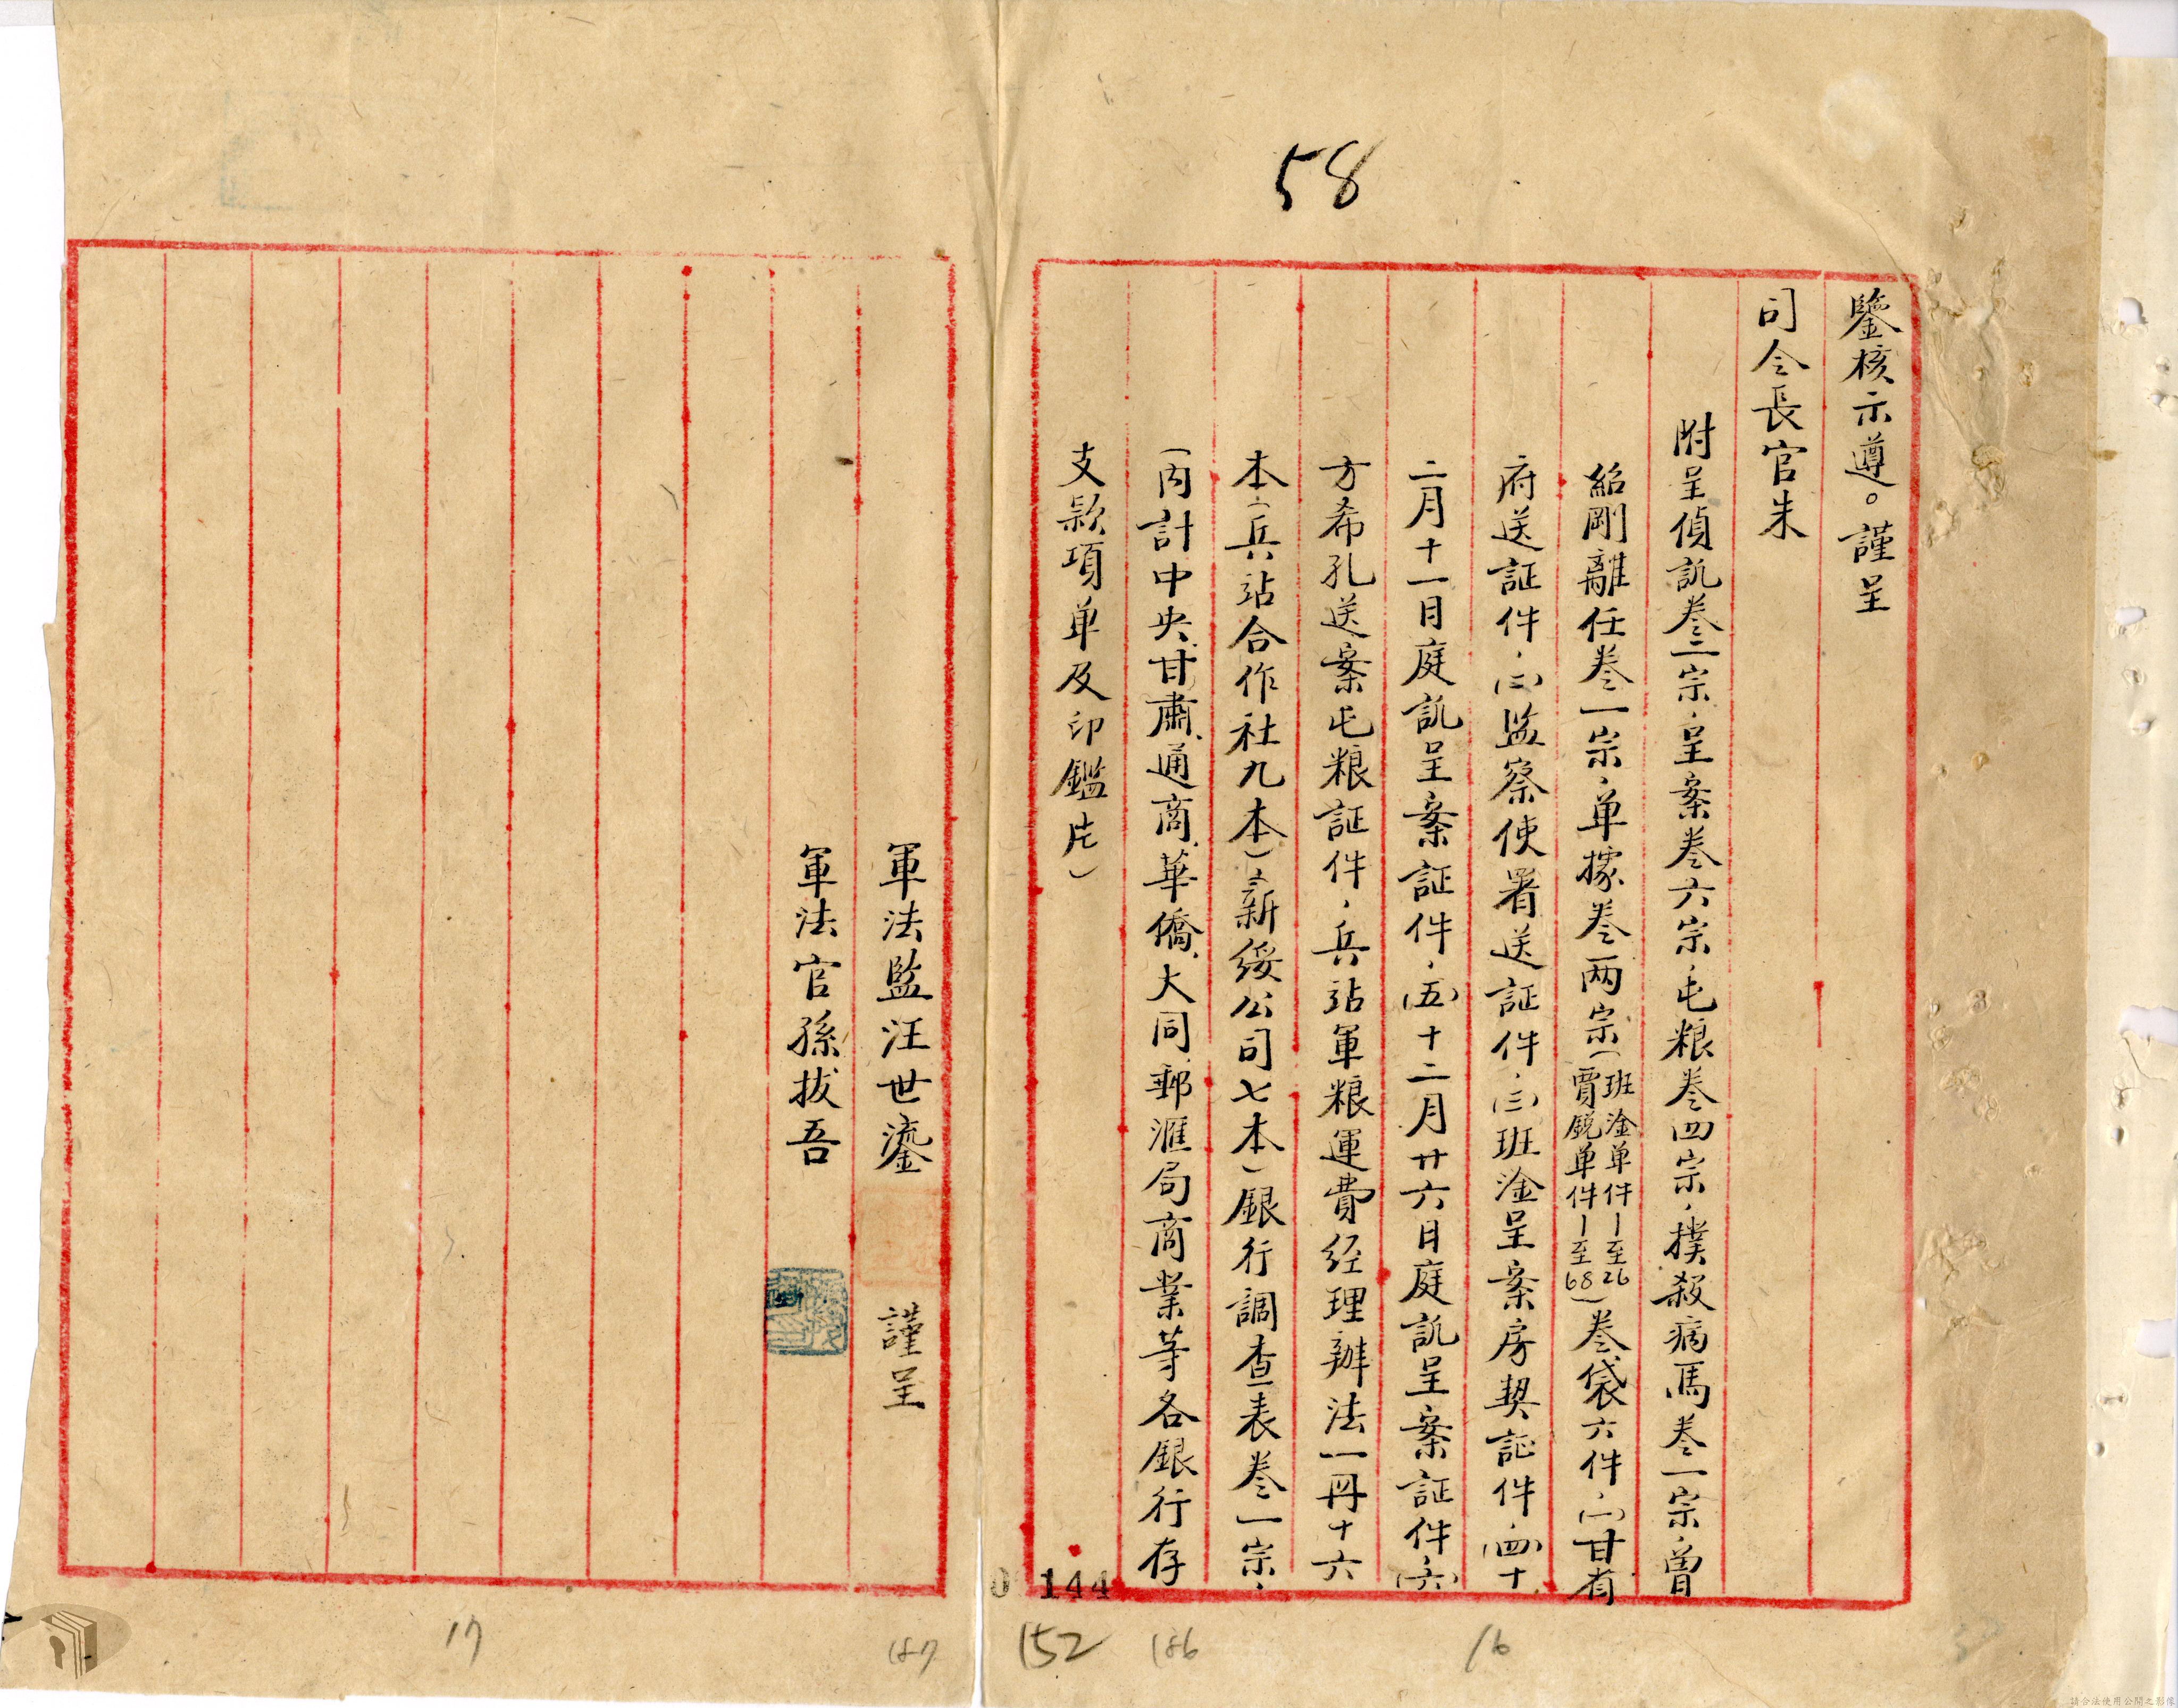 58
鑒核示遵。謹呈
司令長官朱
附呈偵訊卷二宗、呈案卷六宗、屯粮卷四宗、撲殺病馬卷一宗、曾
紹剛離任卷一宗、单據卷两宗（班淦单件1至26 賈銳单件1至68）卷袋六件、㈠甘省
府送証件、㈡监察使署送証件、㈢班淦呈案房契証件、㈣十
二月十一日庭訊呈案証件、㈤十二月廿六日庭訊呈案証件、㈥
方希孔送案屯粮証件、兵站軍粮運費经理辦法一冊十六
本（兵站合作社九本）（新绥公司七本）銀行調查表卷一宗、
（内計中央、甘肅、通商、華僑、大同、郵滙局商業等各銀行存
支款項单及印鑑片）
軍法監汪世鎏 謹呈
軍法官孫拔吾
144
17
187
152
186
16
請合法使用公開之影像